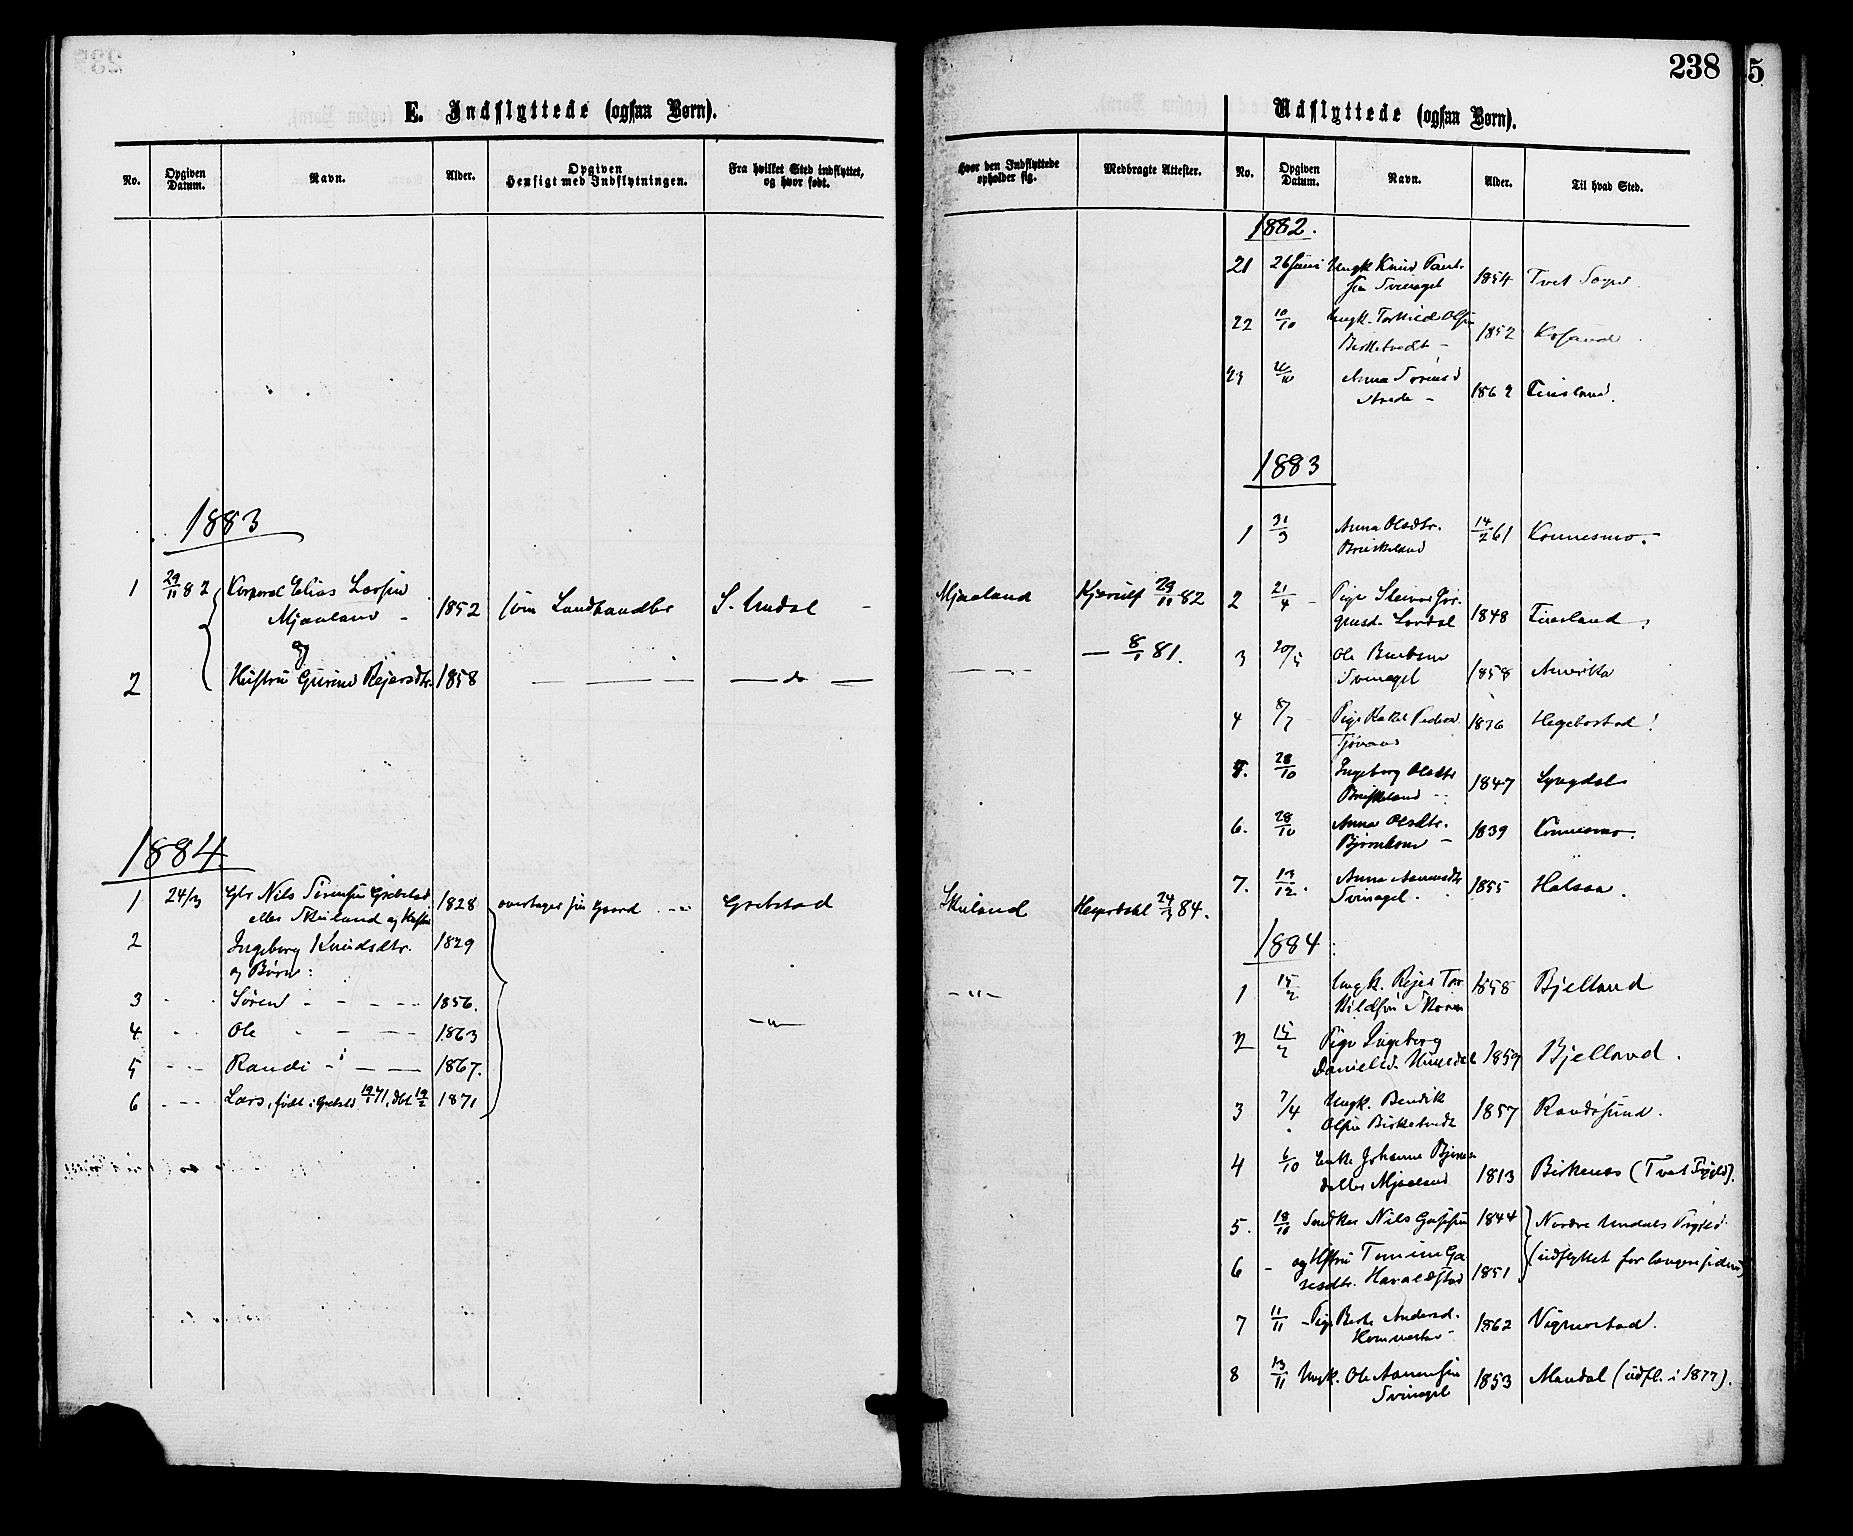 238
5
E. Indflyttede (ogsaa Børn).
No.
Opgiven Datum.
Navn.
Alder.
Opgiven Hensigt med Indflytningen.
Fra hvilket Sted indflyttet, og hvor født.
1883
1 29/11 82 Korporal Elias Larsen
Mjaaland 1852 som Landhandler S. Undal
og
2 Hustru Gurine Rejersdtr. 1858 — — — — do —
1884
1 24/3 Gbr Nils Sørensen Grebstad 1828 overtager sin Gaard Grebstad
eller Skuland og Hustru
2 Ingeborg Knudsdtr. 1829
og Børn:
3 Søren 1856.
4 Ole 1863 — " —
5 Randi 1867.
6 Lars, født i 19/1 71, dbt 19/2 1871
Udflyttede (ogsaa Børn).
Hvor den Indflyttede opholder sig.
Medbragte Attester.
No.
Opgiven Datum.
Navn.
Alder.
Til hvad Sted.
Mjaaland Kjerulf 29/11 82
— 8/1 81.
Skuland 24/3 84.
— " —
1882.
21 26 Juni Ungk Knud
Svinagel 1854 Tvet Sogn
22 10/10 Ungk. Olsen
Birketvedt 1852
23 Anna
1862 Finsland.
1883
1 31/3 Anna Olsdtr. 14/2 61 Konnesmo.
2 21/4 Pige
1848 Finsland
3 20/5 Ole
Svinagel 1858 Amerika
4 8/7 Pige Rakel 1876 Hegebostad
5. 28/10 Ingeborg Olsdtr 1847 Lyngdal
6. 28/10 Anna Olsdtr. 1839 Konnesmo.
7. 13/12. Anna Aanensdtr
Svinagel. 1855 Halsaa.
1884
1 15/2 Ungk. Rejer
1858 Bjelland
2 15/2 Pige Ingeborg
Danielsd. 1859 Bjelland.
3 7/4 Ungk. Bendik
Olsen Birketvedt 1857 Randøsund.
4 6/10 Enke Johanne
Mjaaland 1813 Birkenes (Tvet Prgjld).
5. 18/10 Nils 1844 Nordre Undals Prgjeld
6 - og Hustru
Haraldstad 1851 (udflyttet for længere siden)
7 11/11 Pige Berte Andersd.
1862 Vigmostad.
8 13/11 Ungk. Ole Aanensen
Svinagel 1853 Mandal (udfl. i 1877).